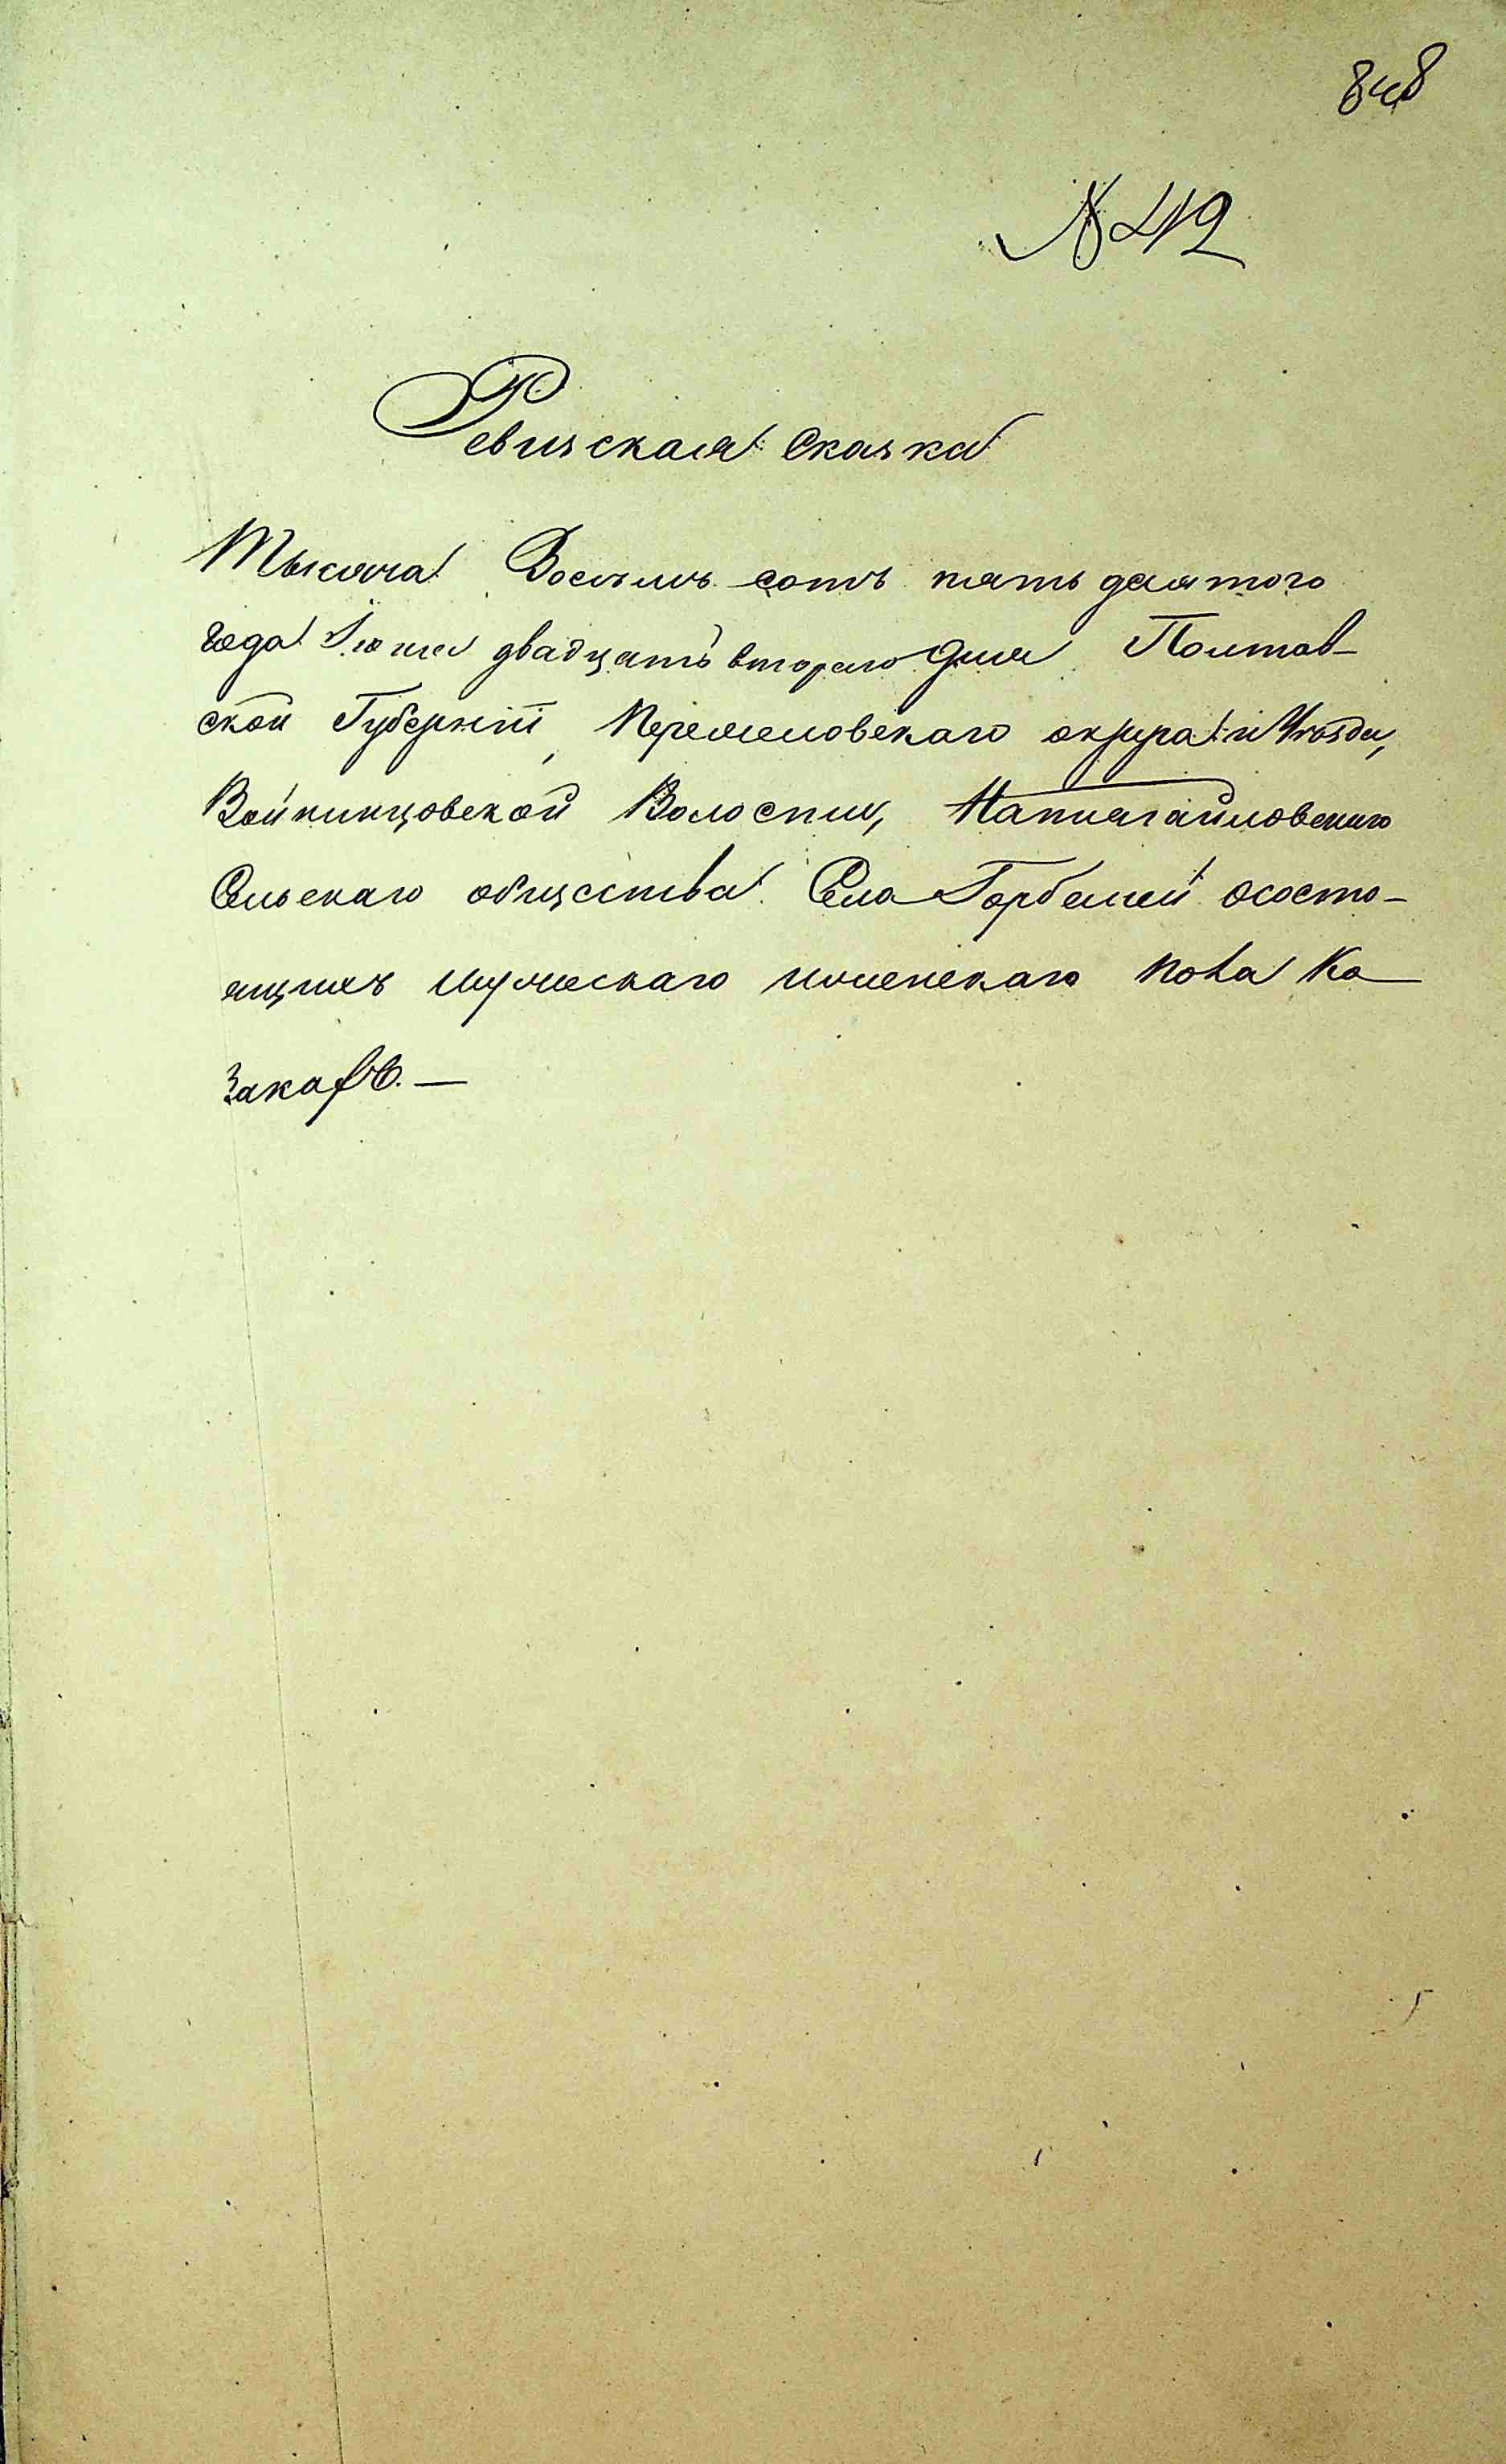 848
№ 412
Ревизская Сказка
Тысяча Восемь сотъ пять десятого
года Іюня двадцать второго дня Полтав-
ской Губерніи, Переяславскаго округа и Уѣзда,
Войнинцовской Волости,
Сельскаго общества Села Горбаней ососто-
ящихъ мужескаго иженскаго пола Ка
заковъ. —